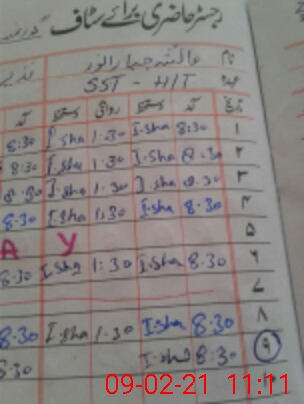 رجسٹر حاضری برائے سٹاف گورنمنٹ
نام
عہدہ SST - HIT
تاریخ آمد دستخط روانگی دستخط آمد
۱ 8:30 I.sha 1.30 I.sha 8:30
۲ 8.30 I.sha 1.30 I.sha 8:30
۳ 8.30 I.sha 1.30 I.sha 8.30
۴ 8.30 I.sha 1.30 I.sha 8.30
۵ Y A
۶ 8.30 I.sha 1:30 I.sha 8:30
۷
۸ 8.30 I.sha 1.30 I.sha 8.30
۹ 8:30 I.sha 8:30
۱۰
09-02-21 11:11